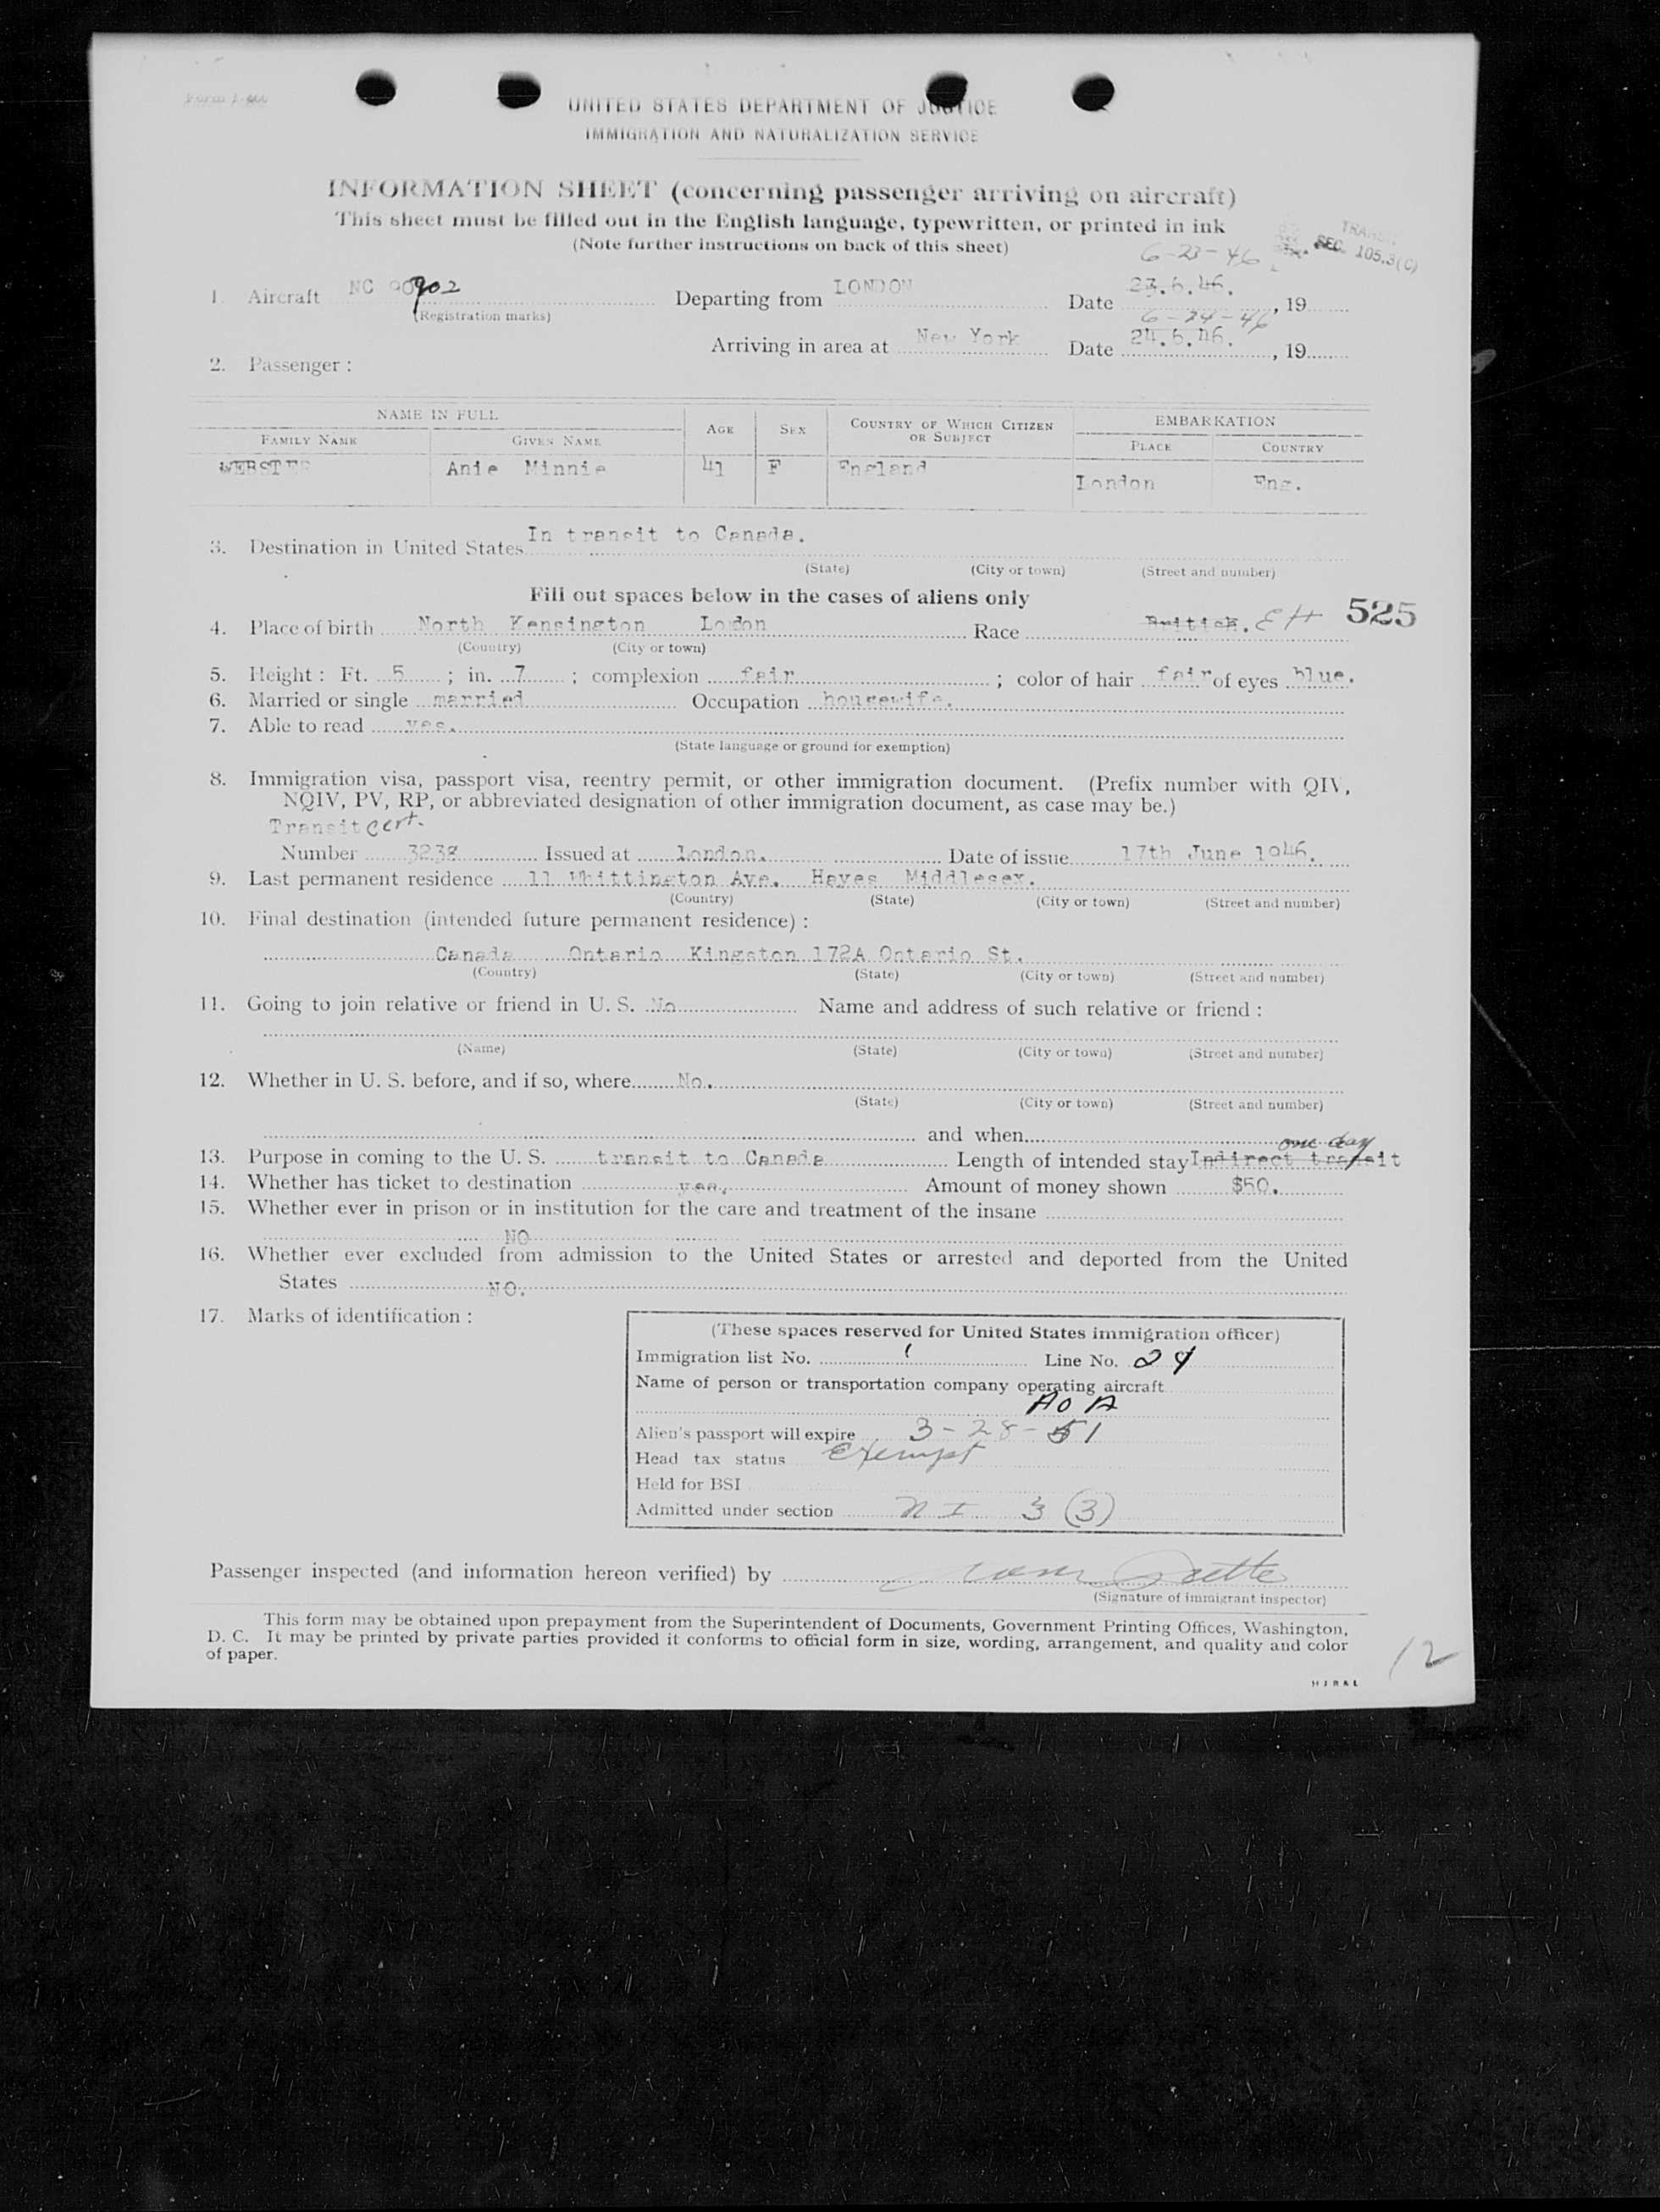 UNITED STATES DEPARTMENT OF JUSTICE
IMMIGRATION AND NATURALIZATION SERVICE
INFORMATION SHEET (concerning passenger arriving on aircraft)
This sheet must be filled out in the English language, typewritten, or printed in ink
(Note further instructions on back of this sheet)
6-23-46
TRANSIT
SEC. 105.3(C)
1. Aircraft NC 90902 Departing from LONDON Date 23.6.46. , 19
(Registration marks)
6-24-46
Arriving in area at New York Date 24.6.46. , 19
2. Passenger :
NAME IN FULL
FAMILY NAME GIVEN NAME AGE SEX COUNTRY OF WHICH CITIZEN OR SUBJECT EMBARKATION
PLACE COUNTRY
WEBSTER Anie Minnie 41 F England London Eng.
3. Destination in United States In transit to Canada.
(State) (City or town) (Street and number)
Fill out spaces below in the cases of aliens only
4. Place of birth North Kensington Lodon Race British. EH 525
(Country) (City or town)
5. Height : Ft. 5 ; in. 7 ; complexion fair ; color of hair fair of eyes blue.
6. Married or single married Occupation housewife.
7. Able to read yes.
(State language or ground for exemption)
8. Immigration visa, passport visa, reentry permit, or other immigration document. (Prefix number with QIV,
NQIV, PV, RP, or abbreviated designation of other immigration document, as case may be.)
Transit cert.
Number 3238 Issued at london. Date of issue 17th June 1946.
9. Last permanent residence 11 Whittington Ave. Hayes Middlesex.
(Country) (State) (City or town) (Street and number)
10. Final destination (intended future permanent residence) :
Canada Ontario Kingston 172A Ontario St.
(Country) (State) (City or town) (Street and number)
11. Going to join relative or friend in U. S. No Name and address of such relative or friend :
(Name) (State) (City or town) (Street and number)
12. Whether in U. S. before, and if so, where No.
(State) (City or town) (Street and number)
and when
one day
13. Purpose in coming to the U. S. transit to Canada Length of intended stay Indirect transit
14. Whether has ticket to destination yes. Amount of money shown $50.
15. Whether ever in prison or in institution for the care and treatment of the insane
NO
16. Whether ever excluded from admission to the United States or arrested and deported from the United
States NO.
17. Marks of identification :
(These spaces reserved for United States immigration officer)
Immigration list No. 1 Line No. 24
Name of person or transportation company operating aircraft
AOA
Alien's passport will expire 3-28-51
Head tax status Exempt
Held for BSI
Admitted under section NI 3 (3)
Passenger inspected (and information hereon verified) by
(Signature of immigrant inspector)
This form may be obtained upon prepayment from the Superintendent of Documents, Government Printing Offices, Washington,
D. C. It may be printed by private parties provided it conforms to official form in size, wording, arrangement, and quality and color
of paper.
12